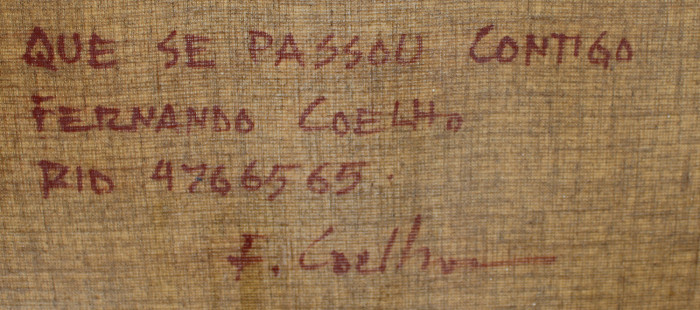 QUE SE PASSOU CONTIGO
FERNANDO COELHO
RIO 4766565.
F. Coelho